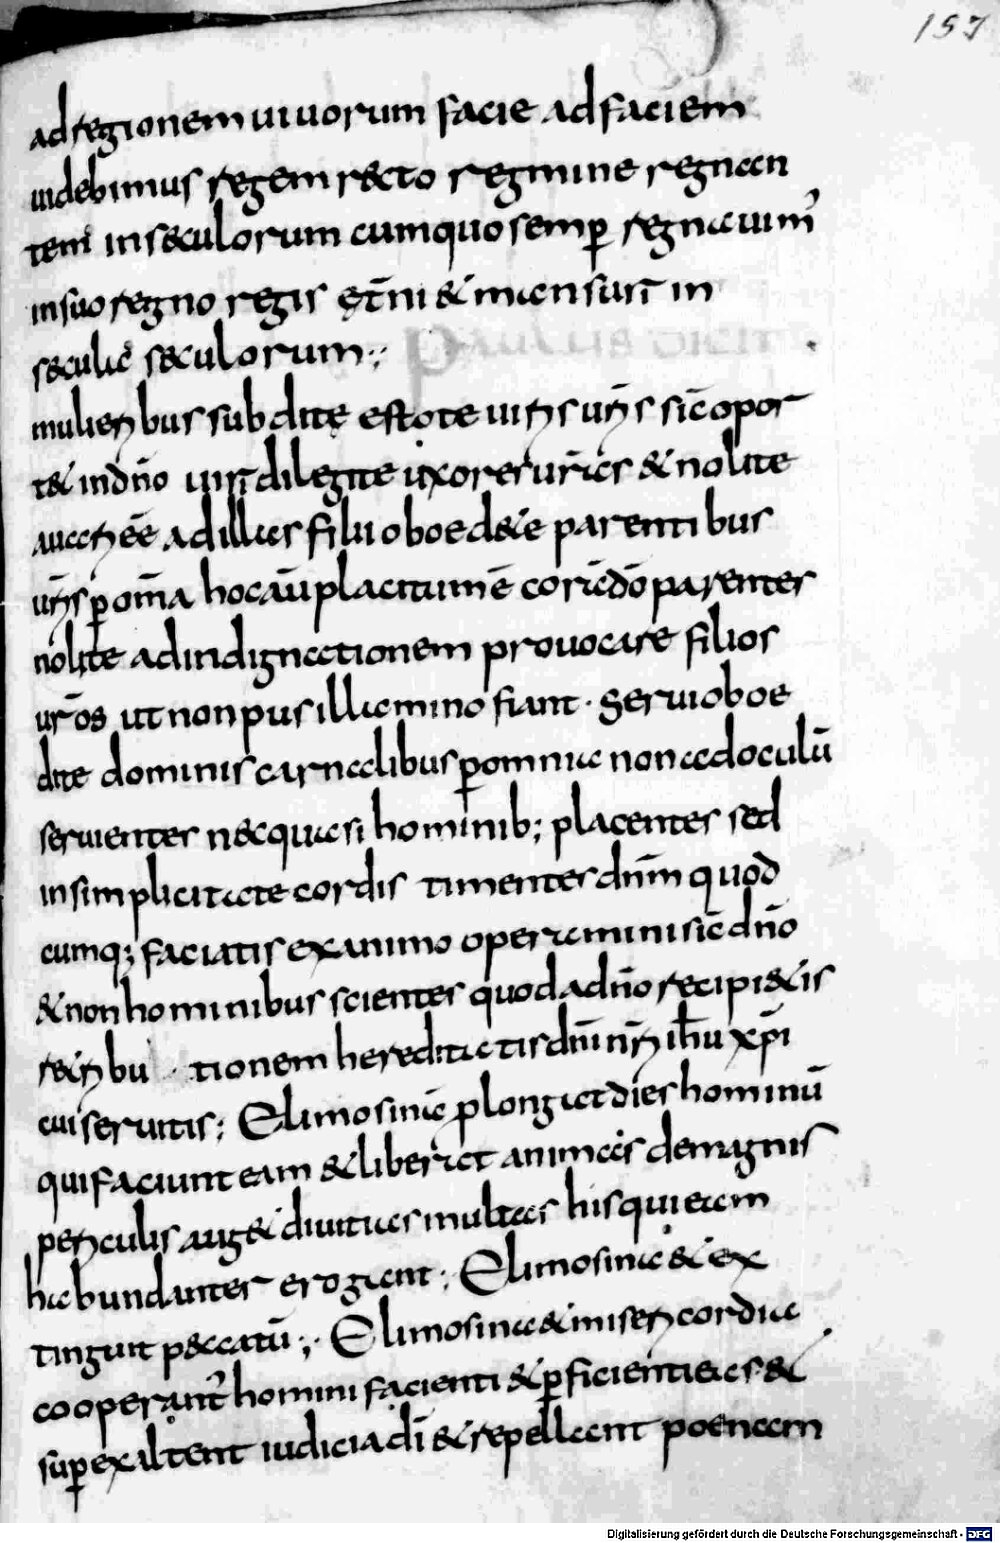 157
ad regionem uiuorum facie ad faciem
uidebimus regem recto regmine regnan
tem in seculorum cumquo semp regnauim
insuo regno regis et̄ni & mansuri in
secula seculorum:,
Paulus dicit
mulieribus subdite estote uiris ur̄is sic̄ opor
t& indn̄o uiri dilegite uxores ur̄as & nolite
amari eē ad illas filii oboed&e parentibus
ur̄is p om̄a hoc au̅ placitum ē coram dō parentes
nolite adindignationem prouocare filios
ur̄os ut non pusillamino fiant · Serui oboe
dite dominis carnalibus p omnia non adoculū
seruientes nec quasi hominib; placentes sed
insimplicitate cordis timentes dnm̄ quod
cumq; faciatis exanimo operamini sic̄ dn̄o
& non hominibus scientes quod adn̄o recipi&is
retribu tionem hereditatis dnī nr̄i ihū xpī
cui seruitis; Elimosina plongat dies hominū
qui faciunt eam & liberat animas demagnis
periculis aug& diuitias multas his qui eam
habundanter erogant; Elimosina & ex
tinguit peccatū;· Elimosina & misericordia
cooperant̄ homini facienti & pficienti eas &
supexaltent iudicia dī & repellant poenam
Digitalisierung gefördert durch die Deutsche Forschungsgemeinschaft - DFG